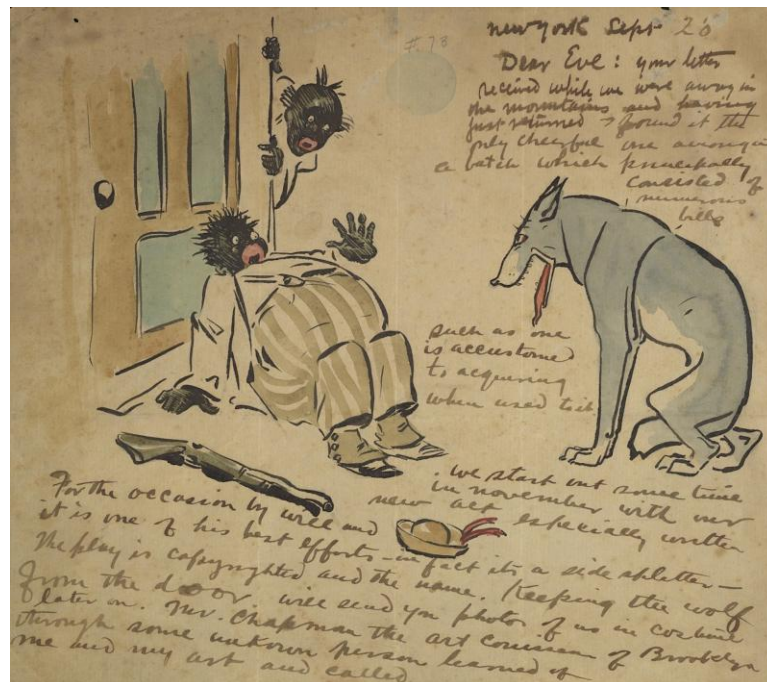 # 78
new york Sept 26
Dear Eve: your letter
received while we were away in
the mountains and having
just returned - found it the
only cheerful one among in
a batch which principally
consisted of
numerous
bills
such as one
is accustomed
to acquiring
when used to it
we start out some time
in november with our
new act especially written
For the occasion by will and
it is one of his best efforts - in fact its a side splitter -
the play is copyrighted and the name. Keeping the wolf
from the door. will send you photos of us in costume
later on. Mr. Chapman the art comission of Brooklyn
through some unkown person learned of
me and my art and called